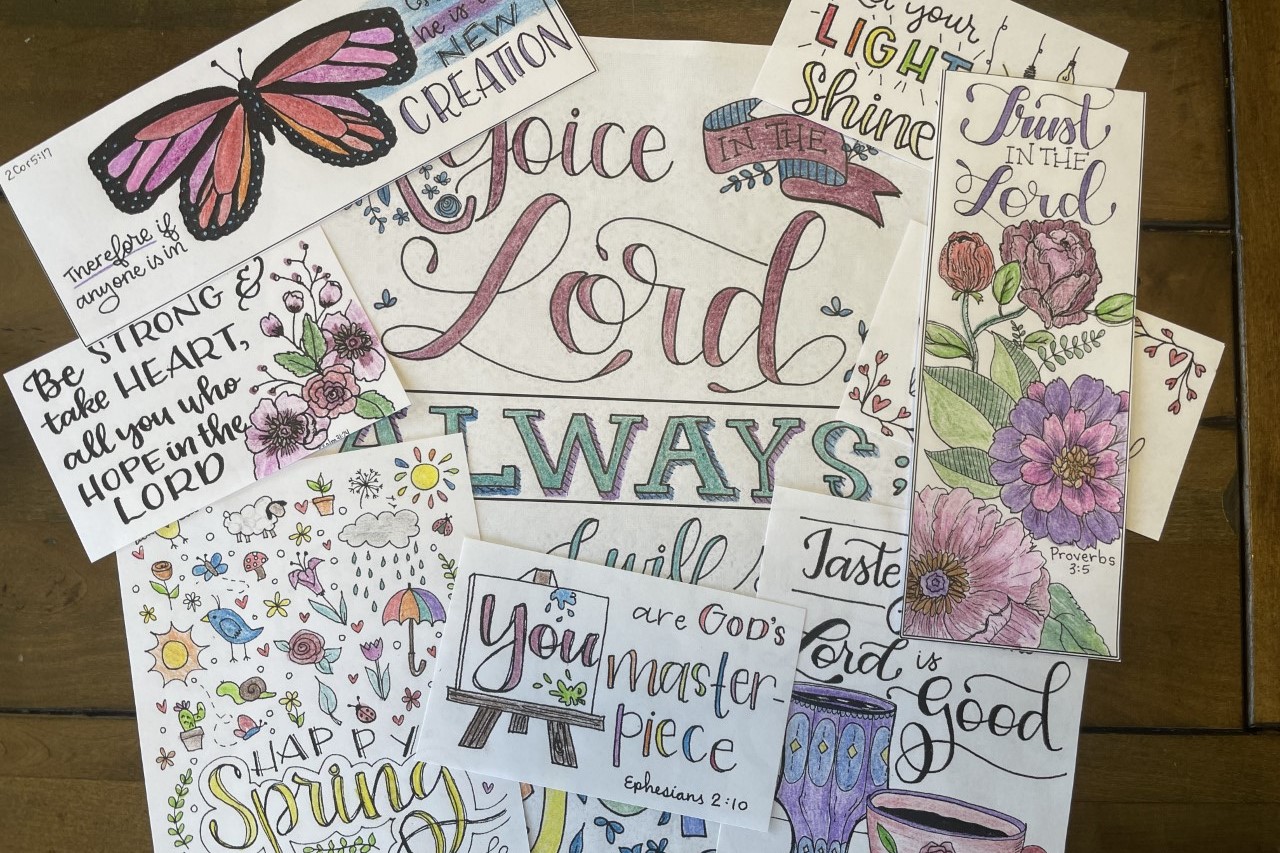 he is a
NEW
CREATION
2 Cor 5:17
Therefore if
anyone is in
your
LIGHT
Shine
Trust
IN THE
Lord
Proverbs
3:5
joice
IN THE
Lord
ALWAYS;
I will
Be STRONG &
take HEART,
all you who
HOPE in the
LORD
Psalm 31:24
HAPPY
Spring
You
are GOD'S
master-
piece
Ephesians 2:10
Taste
Lord is
Good